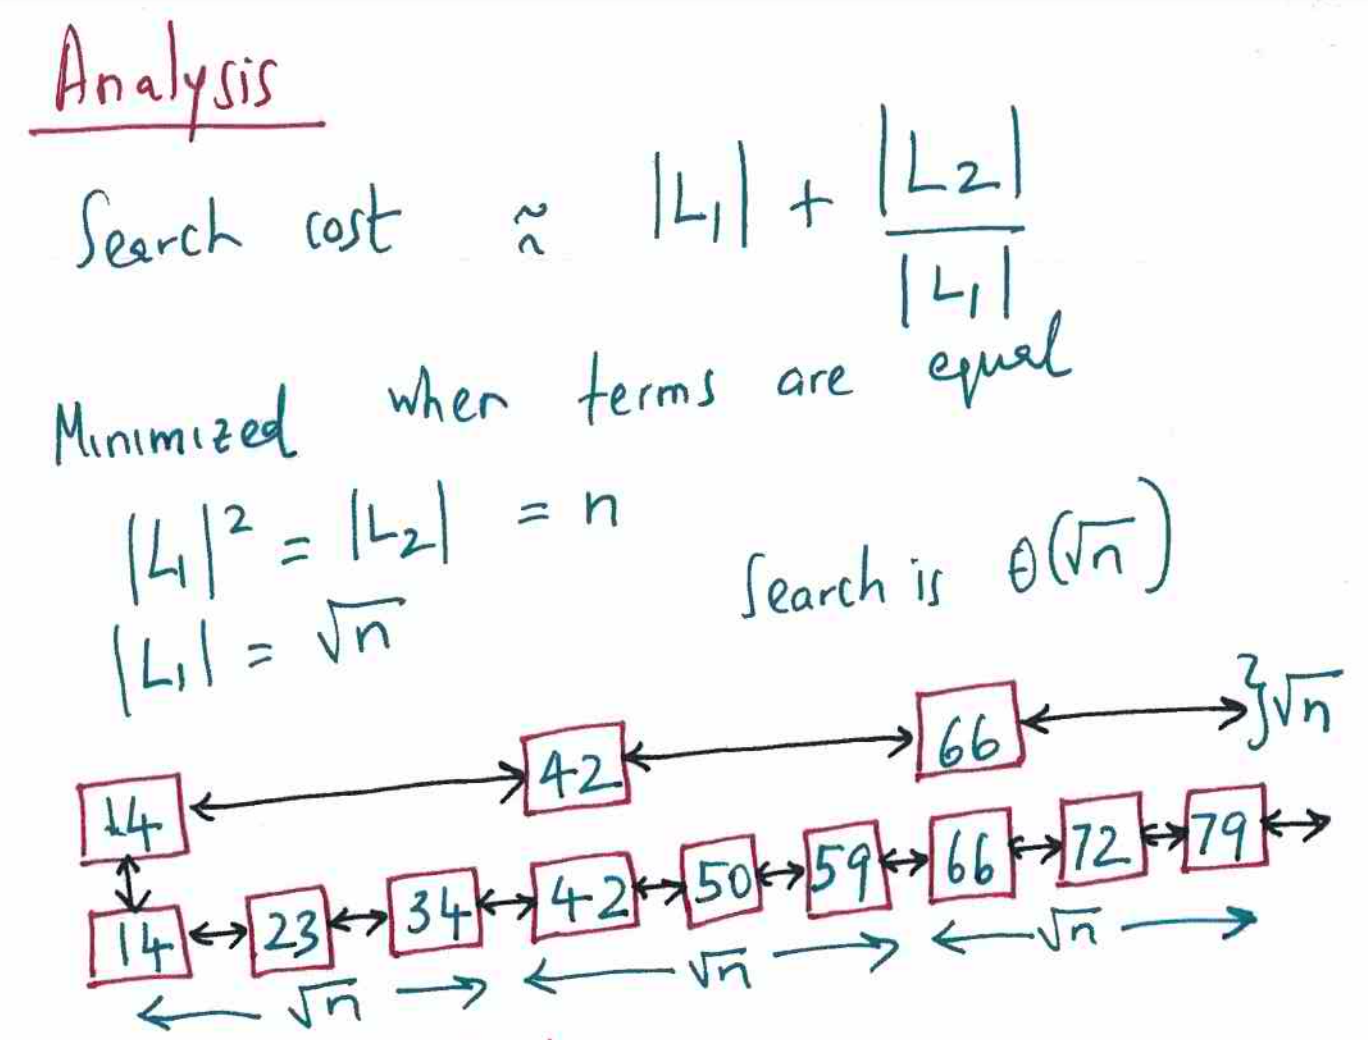 Analysis
Search cost ≈ |L₁| + |L₂| / |L₁|
Minimized when terms are equal
|L₁|² = |L₂| = n
Search is θ(√n)
|L₁| = √n
14 42 66 }√n
14 23 34 42 50 59 66 72 79
√n √n √n